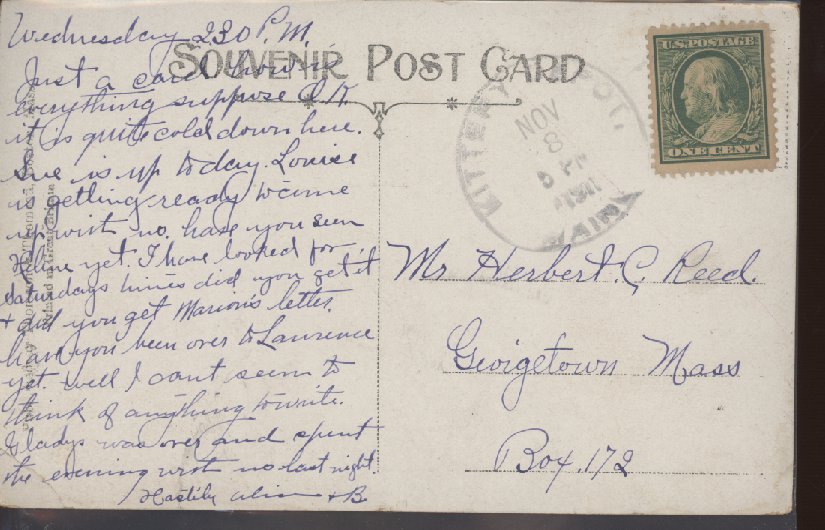 Wednesday 2.30 P.M.
SOUVENIR POST CARD
Just a card
everything suppose O.K.
it is quite cold down here.
she is up today. Louise
is getting ready to come
up wist us. have you seen
yet. I have looked for
Saturdays did you get it
+ did you get Marion's letter.
have you been over to Lawrence
yet. Well I cant seem to
think of anything to write.
Gladys was over and spent
the evening wist us last night.
Hastily + B.
U.S. POSTAGE
ONE CENT
KITTERY DEPOT, MAINE
NOV
8
Mr Herbert. C. Reed.
Georgetown Mass
Box. 172